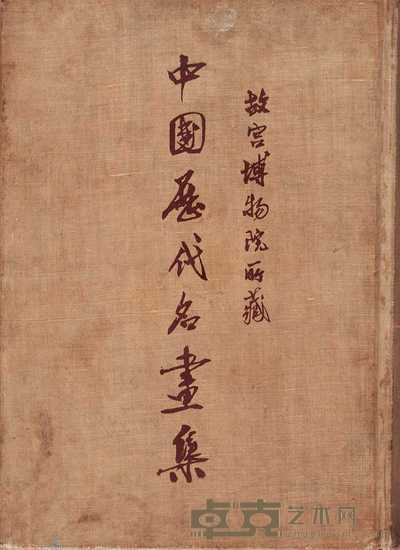 故宫博物院所藏
中國歷代名畫集
卓克艺术网